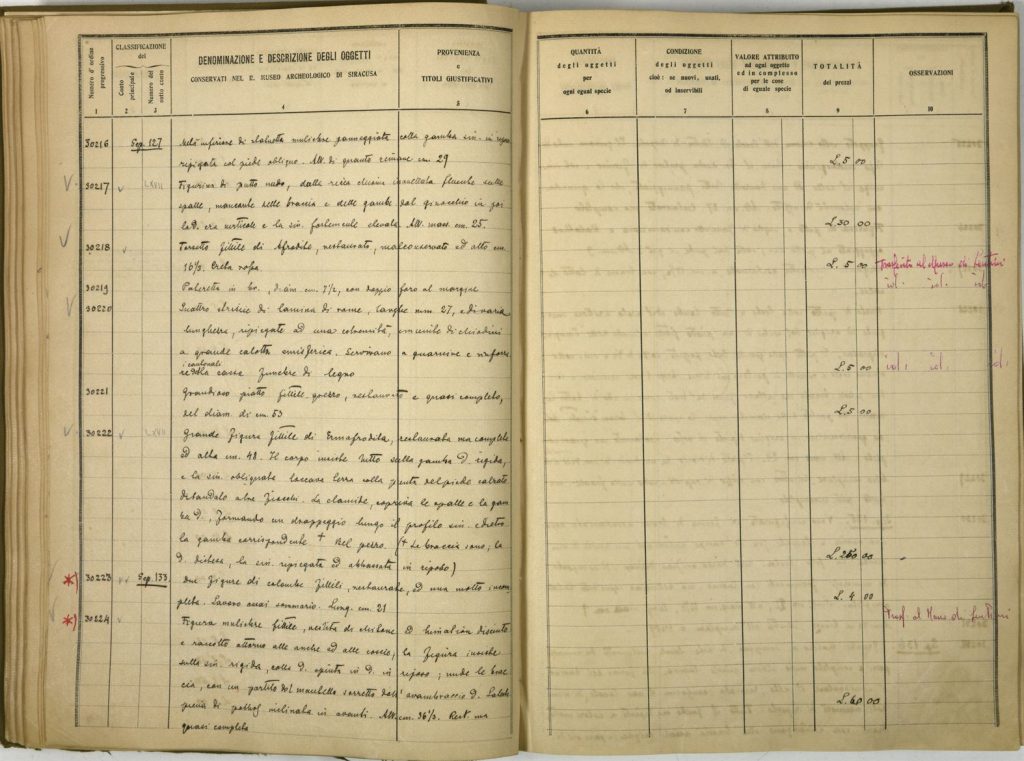 Numero d'ordine progressivo
CLASSIFICAZIONE del
Conto principale
Numero del sotto conto
DENOMINAZIONE E DESCRIZIONE DEGLI OGGETTI
CONSERVATI NEL R. MUSEO ARCHEOLOGICO DI SIRACUSA
PROVENIENZA
e
TITOLI GIUSTIFICATIVI
1 2 3 4 5
30216 Sep. 127 Metà inferiore di statuetta muliebre panneggiata colla gamba sin. in riposo
ripiegata col piede obliquo. Alt. di quanto rimane cm 29
V 30217 v LXVII Figurina di putto nudo, dalla
spalle, mancante delle braccia e delle gambe dal ginocchio in
la D. era verticale e la sin. fortemente elevata. Alt. mass. cm. 25.
V 30218 v Torsetto fittile di Afrodite, restaurato, malconservato ed alto cm.
16½. Creta rossa
30219 Pateretta in br., diam. cm. 7½, con doppio foro al margine
V 30220 Quattro striscie di lamina di rame, larghe mm. 27, e di varia
lunghezza, ripiegate ad una estremità, munite di chiodini
a grande calotta emisferica. Servivano a guarnire e rinfor
i cantonali
della cassa funebre di legno
30221 Grandioso piatto fittile grezzo, restaurato e quasi completo,
del diam. di cm. 53
V 30222 v LXVII Grande figura fittile di Ermafrodita, restaurata ma completa
ed alta cm. 48. Il corpo insiste tutto sulla gamba D. rigida,
e la sin. obliquata toccava terra colla punta del piede calzato
La clamide, copriva le spalle e la gam
ba D., formando un drappeggio lungo il profilo sin. e dietro
la gamba corrispondente + Bel pezzo. (+ Le braccia sono, la
D. distesa, la sin. ripiegata ed abbassata in riposo)
*) 30223 v v Sep. 133 Due figure di colombe fittili, restaurate, ed una molto incom
pleta. Lavoro assai sommario. Lung. cm. 21
*) 30224 v Figura muliebre fittile, vestita di chitone ed himation discinto
e raccolto attorno alle anche ed alle coscie, la figura insiste
sulla sin. rigida, colla D. spinta in D. in riposo; nude le brac
cia, con un partito del mantello sorretto dall'avambraccio D.
inclinata in avanti. Alt. cm. 36½. Rest. ma
quasi completa
QUANTITÀ
degli oggetti
per
ogni egual specie
CONDIZIONE
degli oggetti
cioè: se nuovi, usati,
od inservibili
VALORE ATTRIBUITO
ad ogni oggetto
ed in complesso
per le cose
di eguale specie
TOTALITÀ
dei prezzi
OSSERVAZIONI
6 7 8 9 10
L. 5 00
L. 30 00
L. 5 00
id. id. id.
L. 5 00 id. id. id.
L. 5 00
L. 250 00
L. 4 00
L. 60 00